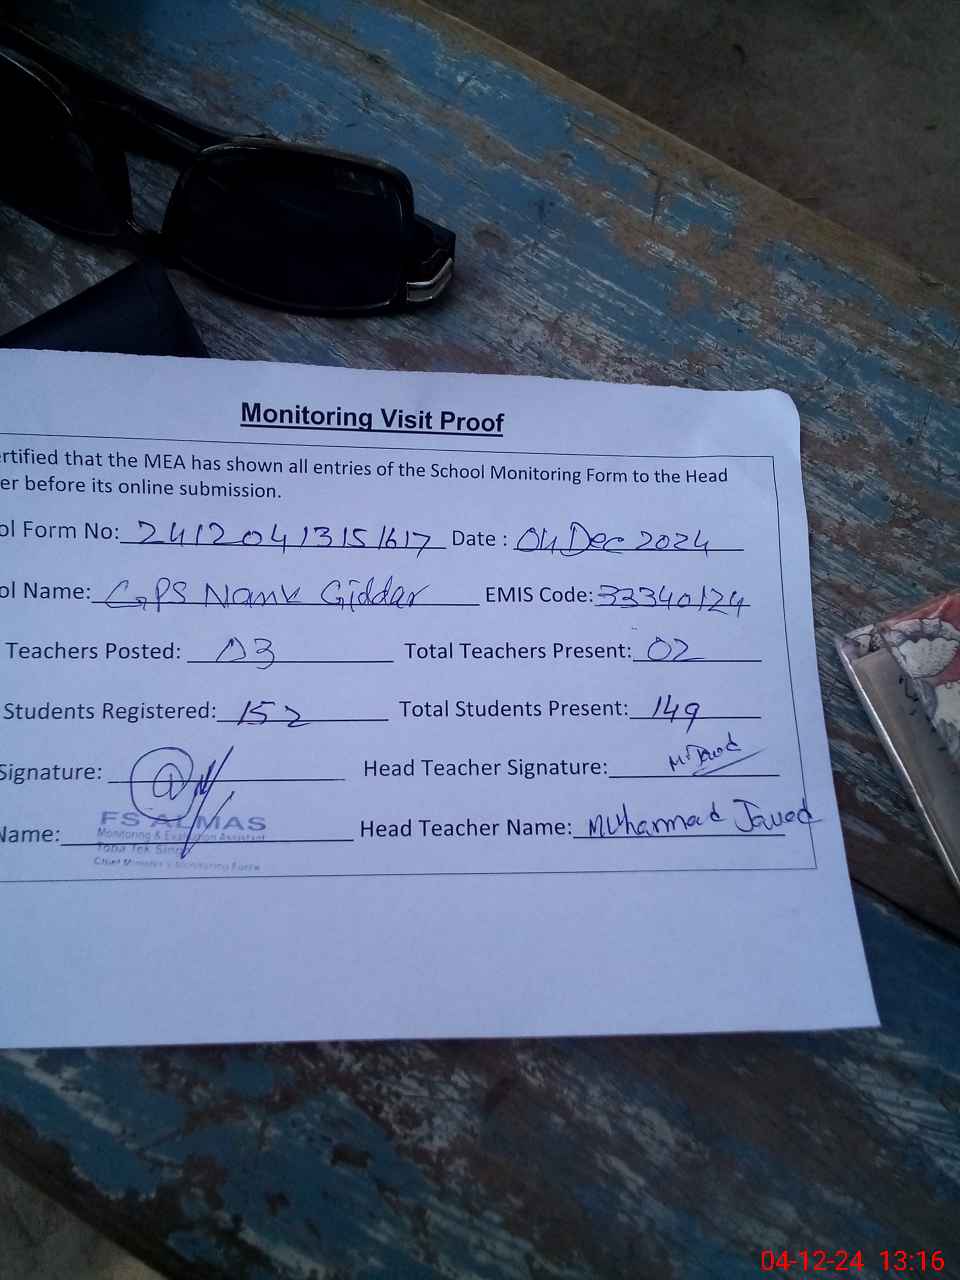 Monitoring Visit Proof
ertified that the MEA has shown all entries of the School Monitoring Form to the Head
er before its online submission.
ol Form No: 24120413151617 Date : 04 Dec 2024
ol Name: GPS Nank Giddar EMIS Code: 33340124
Teachers Posted: 03 Total Teachers Present: 02
Students Registered: 152 Total Students Present: 149
Signature: Head Teacher Signature: M. Javed
Name: FS ALMAS Head Teacher Name: Muhammad Javed
Monitoring & Evaluation Assistant
Toba Tek Singh
Chief Minister's Monitoring Force
04-12-24 13:16